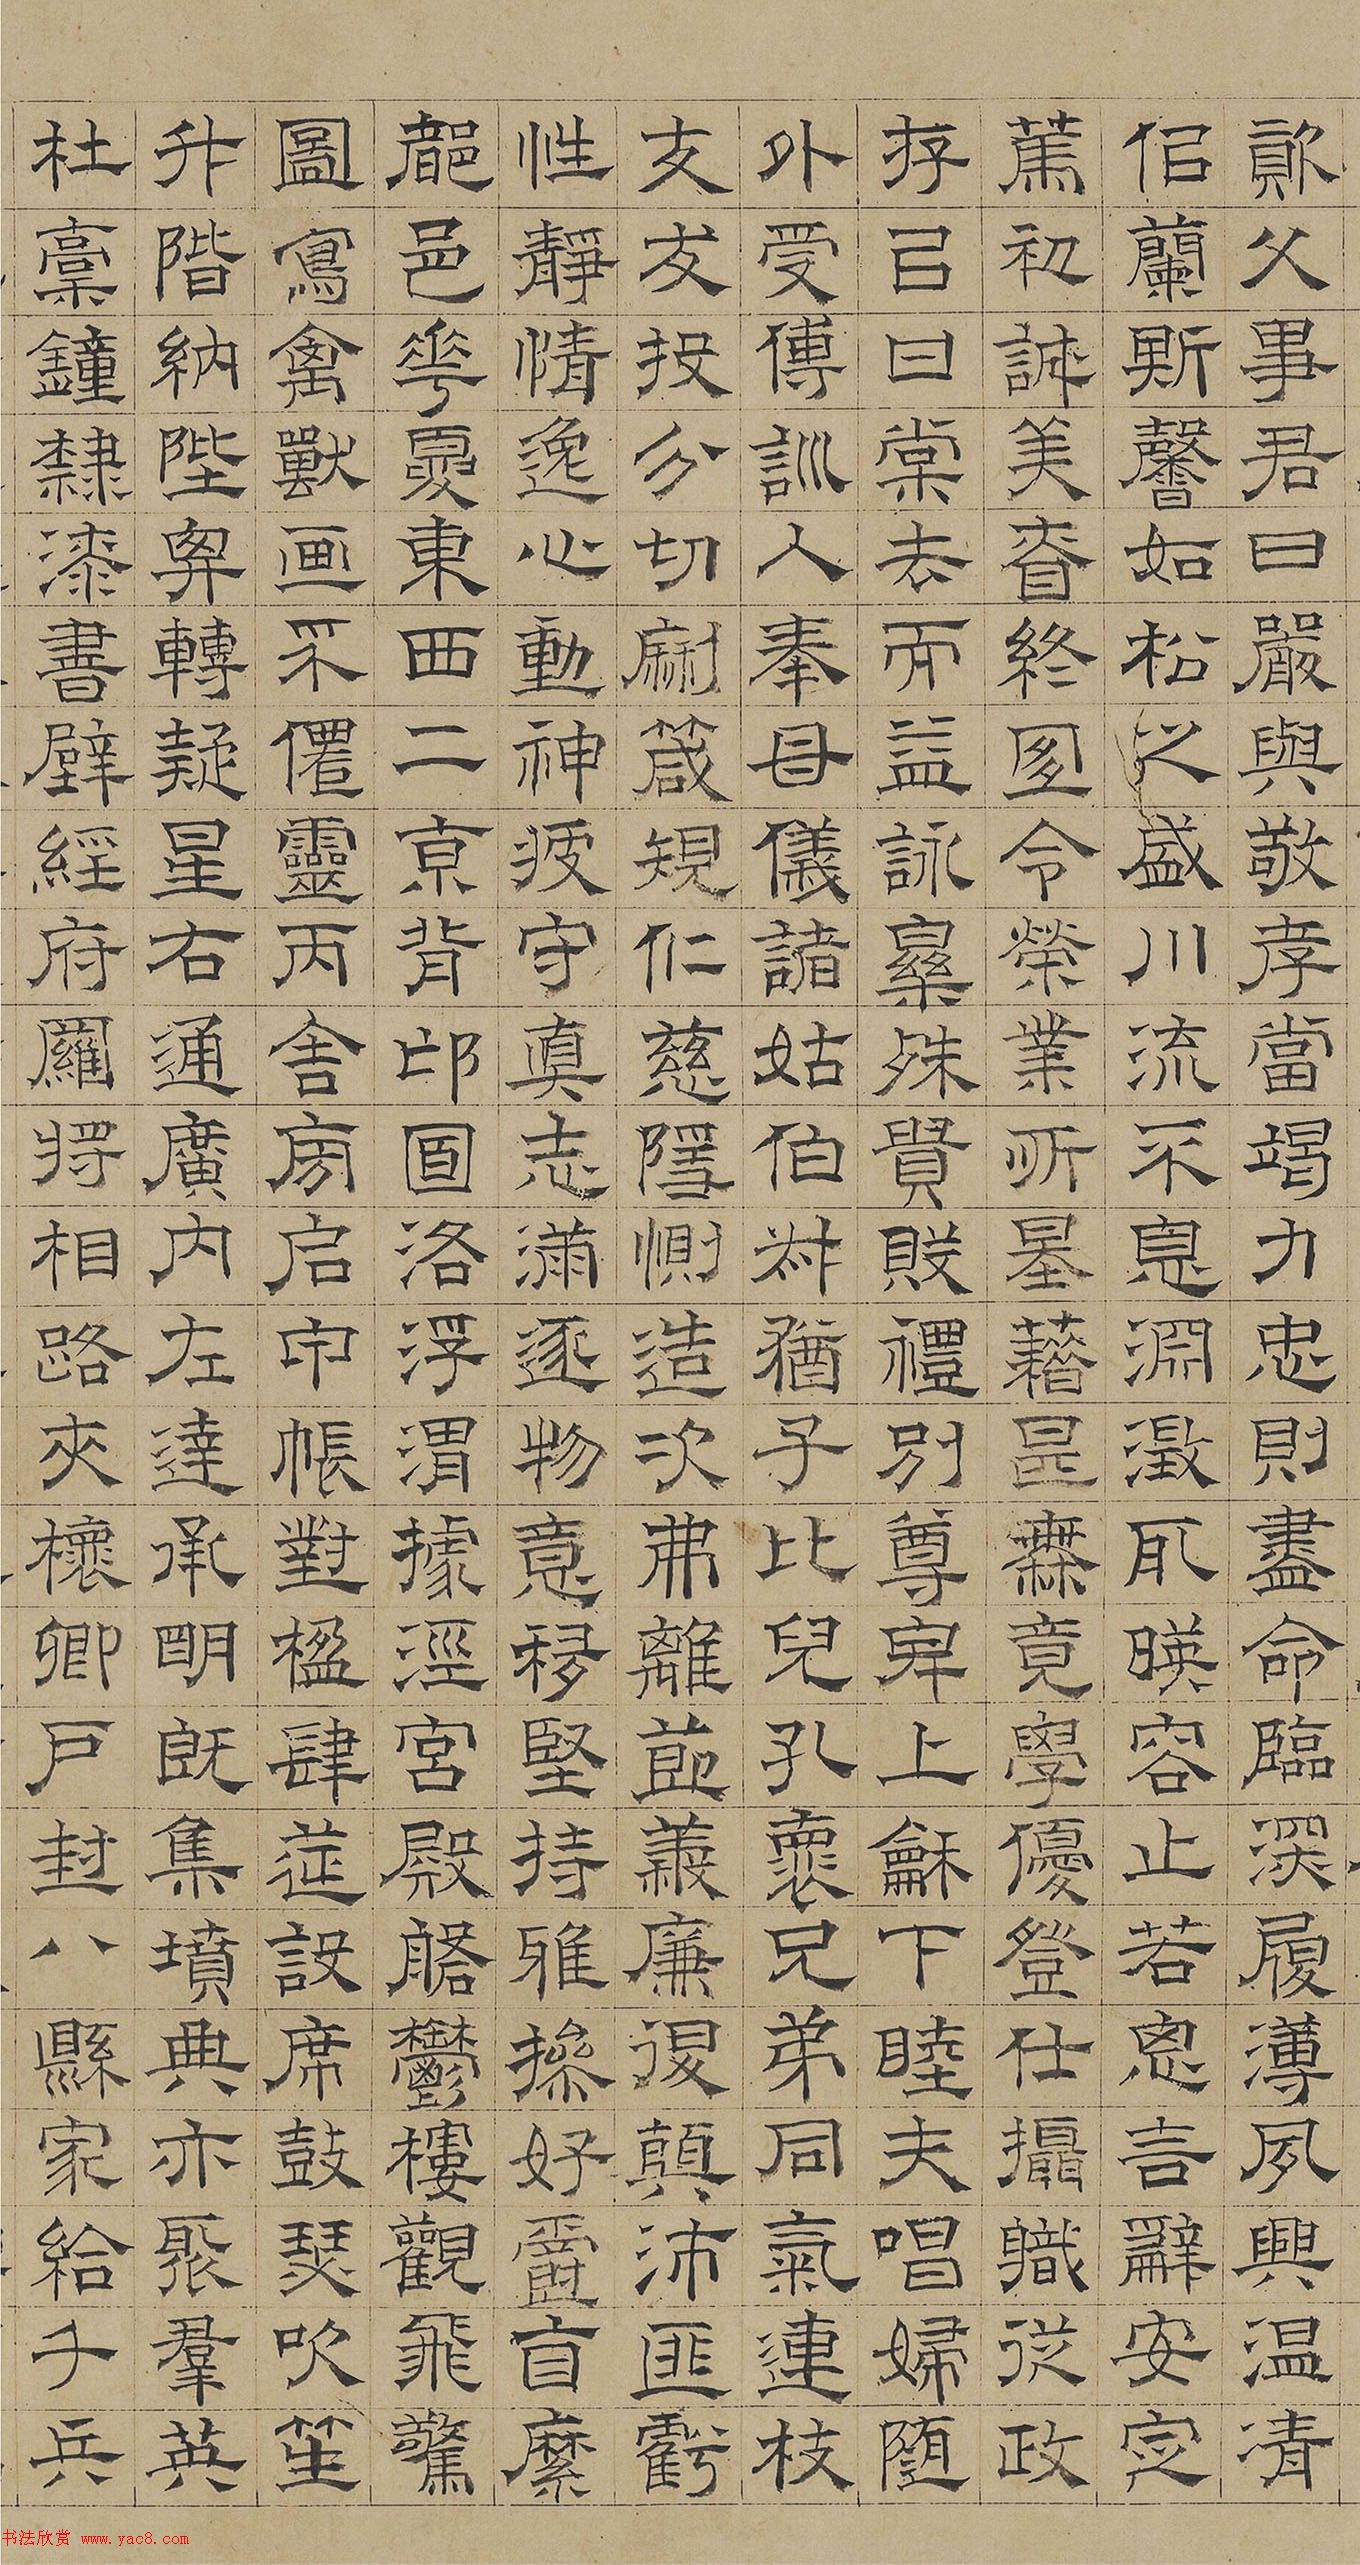 資父事君曰嚴與敬孝當竭力忠則盡命臨深履薄夙興温凊
佀蘭斯馨如松之盛川流不息淵澂取暎容止若思言辭安定
篤初誠美眘終宜令榮業所基藉甚無竟學優登仕攝職從政
存以甘棠去而益詠樂殊貴賤禮別尊卑上龢下睦夫唱婦随
外受傅訓入奉母儀諸姑伯叔猶子比兒孔褱兄弟同氣連枝
交友投分切磨箴規仁慈隱惻造次弗離莭義廉退顛沛匪虧
性靜情逸心動神疲守真志滿逐物意移堅持雅操好爵自縻
都邑華夏東西二京背邙面洛浮渭據涇宮殿盤鬱樓觀飛驚
圖寫禽獸画采僊靈丙舍旁启甲帳對楹肆筵設席鼓瑟吹笙
升階納陛弁轉疑星右通廣內左達承明既集墳典亦聚羣英
杜稾鐘隸漆書壁經府羅將相路夾槐卿户封八縣家給千兵
书法欣赏 www.yac8.com